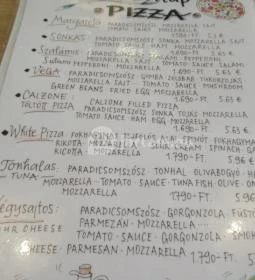 PIZZA
Margareta PARADICSOMSZÓSZ MOZZARELLA SAJT
TOMATO SAUCE MOZZARELLA
1.590.-Ft 5.3 €
SONKÁS: PARADICSOMSZÓSZ SONKA MOZZARELLA SAJT
TOMATO SAUCE HAM MOZZARELLA 1.690.-Ft 5.63 €
Szalámis: PARADICSOMSZÓSZ SZALÁMI PEPPERONI
Salami PEPPERONI MOZZARELLA TOMATO SAUCE SALAMI
VEGA: PARADICSOMSZÓSZ GOMBA ZELLER TÜKÖRTOJÁS
MOZZARELLA SAJT TOMATO SAUCE MUSHROOM
GREEN BEANS FRIED EGG MOZZARELLA
1.690.-Ft. 5.63 €
CALZONE: CALZONE FILLED PIZZA
TÖLTÖTT PIZZA PARADICSOMSZÓSZ SONKA TOJÁS MOZZARELLA
TOMATO SAUCE HAM EGG MOZZARELLA
1.690.-Ft 5.63 €
White Pizza: FOKHAGYMÁS TEJFÖLÖS ALAP SPENÓT FOKHAGYMA
RIKOTTA MOZZARELLA SOUR CREAM SPINACH
RICOTTA MOZZARELLA 1.790-Ft. 5.96 €
Tonhalas: PARADICSOMSZÓSZ TONHAL OLIVABOGYÓ
TUNA MOZZARELLA TOMATO SAUCE TUNA FISH OLIVE
MOZZARELLA 1.790-Ft.
PARADICSOMSZÓSZ GORGONZOLA
PARMEZÁN MOZZARELLA
TOMATO SAUCE GORGONZOLA
CHEESE PARMESAN MOZZARELLA 1.790.-Ft